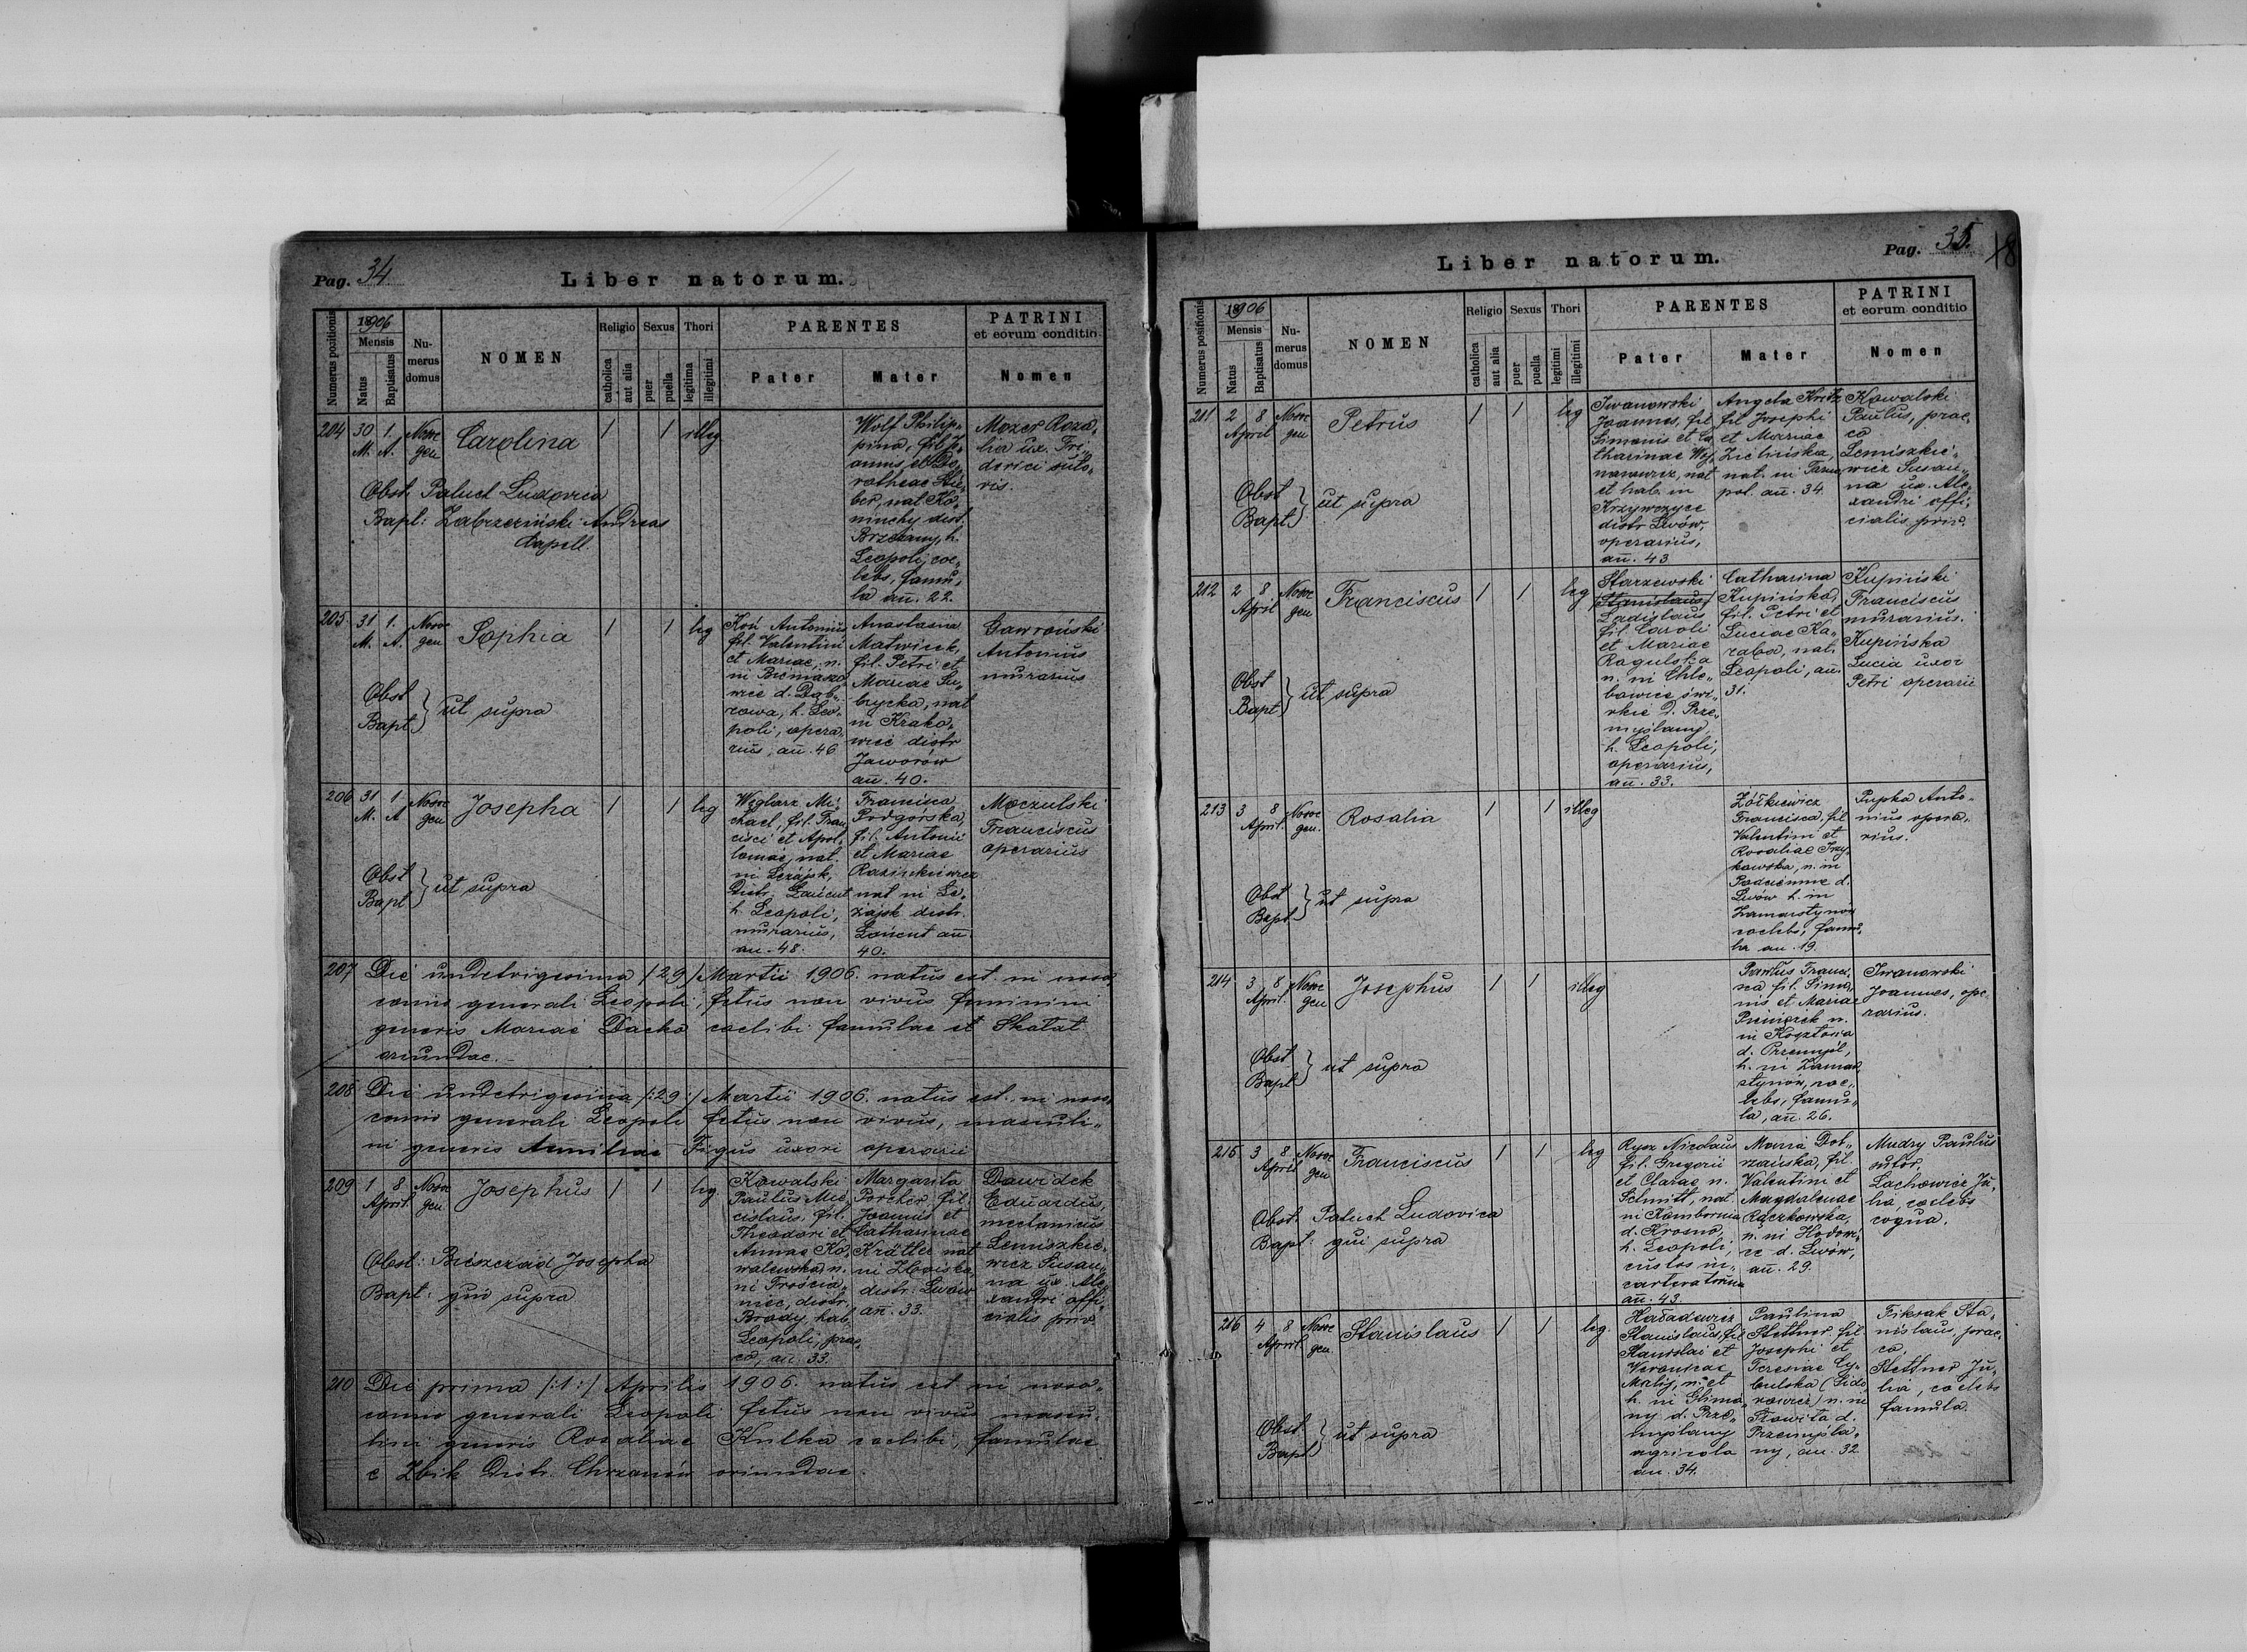 Pag. 34.
Liber natorum.
Numerus pozitionis
1906
Mensis
Natus
Baptisatus
Nu-
merus
domus
NOMEN
Religio
catholica
aut alia
Sexus
puer
puella
Thori
legitima
illegitimi
PARENTES
Pater
Mater
PATRINI
et eorum conditio
Nomen
204
30 M.
1. A.
Nosoc
gen
Carolina
1
1
illeg
Obst. Paluch Ludovica
Bapt: Zabrzeziński Andreas
Capell.
Wolf Philip„
pina, fil. Jo„
annis et Do„
rotheae Stie„
ber, nat. Ko„
ninchy dist.
Brzeżany, h.
Leopoli, coe„
lebs, famu„
la an. 22.
Mozer Roza„
lia ux. Fri„
derici suto„
ris.
205
31 M.
1. A.
Nosoc
gen
Sophia
1
1
leg
Obst
Bapt } ut supra
Koń Antonius
fil. Valentini
et Mariae, n.
in
d. Dąb„
rowa, h. Leo„
poli, opera„
rius, an. 46
Anastasia
Matwicek,
fil. Petri et
Mariae Su„
brycka, nat
in Krako„
wiec distr
Jaworów
an. 40.
Gawroński
Antonius
murarius
206
31 M.
1 A
Nosoc
gen
Josepha
1
1
leg
Obst
Bapt } ut supra
Węglarz Mi„
chael, fil. Fran
cisci et Apol„
loniae, nat.
in Leżajsk,
Distr. Łańcut
h. Leopoli,
murarius,
an. 48.
Francisca
Podgórska,
fil. Antonii
et Mariae
Rasinkiewicz
nat in Le„
żajsk distr.
Łańcut an.
40.
Moczulski
Franciscus
operarius
207
Die undetrigesima /:29:/ Martii 1906. natus est in noso„
comio generali Leopoli, fetus non vivus feminini
generis Mariae Dacko coelibi famulae et Skałat
oriundae.
208
Die undetrigesima /:29:/ Martii 1906. natus est in noso„
comio generali Leopoli fetus non vivus, masculi„
ni generis Aemiliae Figus uxori operarii
209
1 April.
8
Nosoc
gen.
Josephus
1
1
leg
Obst: Bieszczad Josepha
Bapt: qui supra
Kowalski
Paulus Mie„
cislaus, fil.
Theodori et
Annae Ko„
walewska, n.
in Trościa„
niec, distr.
Brody, hab.
Leopoli, prae„
co, an. 33.
Margarita
Porcher, fil
Joannis et
Catharinae
Krätter nat
in Zboiska,
distr. Lwów
an. 33.
Dawidek
Eduardus,
mechanicus
Lemiszkie„
wicz Susan„
na ux. Ale„
xandri offi„
cialis priv
210
Die prima /:1:/ Aprilis 1906. natus est in noso„
comio generali Leopoli fetus non vivus mascu„
lini generis Rosaliae Kulka coelibi, famulae
e Zbik Distr. Chrzanów oriundae.
Liber natorum.
Pag. 35.
Numerus positionis
1906
Mensis
Natus
Baptisatus
Nu-
merus
domus
NOMEN
Religio
catholica
aut alia
Sexus
puer
puella
Thori
legitimi
illegitimi
PARENTES
Pater
Mater
PATRINI
et eorum conditio
Nomen
211
2 8
April
Nosoc
gen
Petrus
1
1
leg
Obst
Bapt } ut supra
Iwanowski
Joannes, fil
Simonis et Ca
tharinae Wój„
narowicz, nat
et hab. in
Krzywczyce
distr Lwów,
operarius,
an. 43
Angela Kritz
fil Josephi
et Mariae
Zielińska,
nat. in
pol. an. 34.
Kowalski
Paulus, prae„
co
Lemiszkie„
wicz Susan„
na ux. Ale„
xandri offi„
cialis priv.
212
2 8
April
Nosoc
gen
Franciscus
1
1
leg
Obst
Bapt } ut supra
Starzewski
/Stanislaus/
Ladislaus
fil. Caroli
et Mariae
Rogulska
n. in Chle„
bowice świ„
rkie D. Prze„
myślany,
h. Leopoli,
operarius,
an. 33.
Catharina
Kupińska,
fil. Petri et
Luciae Ka„
raba, nat.
Leopoli, an.
31.
Kupiński
Franciscus
murarius.
Kupińska
Lucia uxor
Petri operarii
213
3 8
April.
Nosoc
gen.
Rosalia
1
1
illeg
Obst
Bapt } ut supra
Żółkiewicz
Francisca, fil
Valentini et
Rosaliae
n. in
Podciemne d.
Lwów h. in
Zamarstynów
coelebs, famu„
la an. 19.
Pupka Anto„
nius opera„
rius.
214
3 8
April.
Nosoc
gen
Josephus
1
1
illeg
Obst
Bapt } ut supra
Pawlus Franci„
sca fil. Simo„
nis et Mariae
n.
in Kosztowa
d. Przemyśl,
h. in Zamar„
stynów, coe„
lebs, famu„
la, an. 26.
Iwanowski
Joannes, ope„
rarius.
215
3 8
April
Nosoc
gen
Franciscus
1
1
leg
Obst: Paluch Ludovica
Bapt: qui supra
Ryax Nicolaus
fil. Gregorii
et Clarae n.
Schmitt, nat.
in Kombornia
d. Krosno,
h. Leopoli,
custos in„
carceratorum
an. 43.
Maria Dob„
rzańska, fil.
Valentini et
Magdalenae
Rączkowska,
n. in Hodowi„
ce d. Lwów,
an. 29.
Mudry Paulus
sutor,
Lachowicz Ju„
lia, coelebs
coqua.
216
4 8
April
Nosoc
gen
Stanislaus
1
1
leg.
Obst.
Bapt. } ut supra
Haładewicz
Stanislaus, fil
Stanislai et
Veronicae
Malij, n. et
h. in Glinia„
ny d. Prze„
myślany
agricola
an. 34.
Paulina
Stettner fil
Josephi et
Teresiae Cy„
bulska (Sido„
rowicz) n. in
d.
Przemyśla„
ny, an. 32
Fiksak Sta„
nislaus, prae„
co,
Stettner Ju„
lia, coelebs
famula.